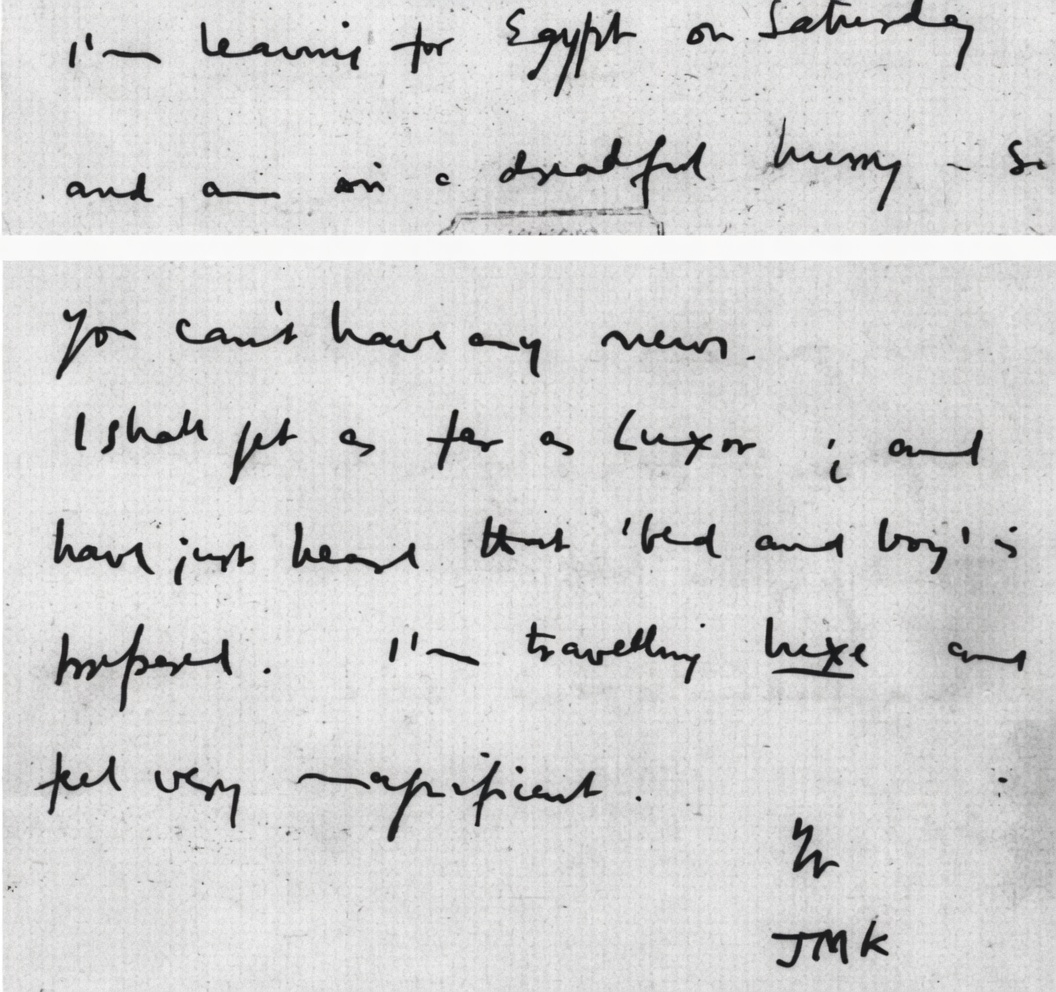 I'm leaving for Egypt on Saturday
and am in a dreadful hurry – So
you can't have any news.
I shall get as far as Luxor ; and
have just heard that 'bed and boy' is
prepared. I'm travelling luxe and
feel very magnificent.
Yr
JMK